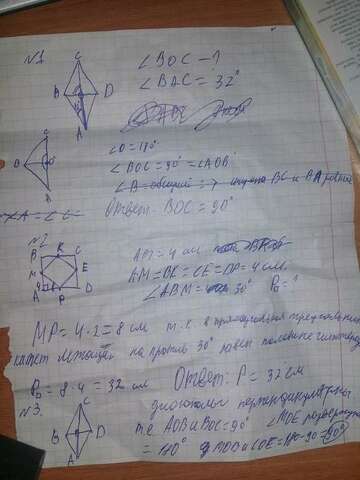 №1
C
B D
A
∠BOC - ?
∠BAC = 32°
C
B O
A
∠O = 180°
∠BOC = 90° = ∠AOB
BC и BA равны
∠A = ∠C
Ответ: BOC = 90°
№2
B K C
M E
A P D
AM = 4 см
AM = BK = CE = DP = 4 см.
∠ABM = 30° P = ?
MP = 4 · 2 = 8 см т.к. в прямоугольном треугольнике
катет лежащий на против 30° равен половине гипотенузы
P = 8 · 4 = 32 см
Ответ: P = 32 см
№3.
C
B D
A
диагонали перпендикулярны
те AOB и BOC = 90° ∠MOE развернутый
= 180° MOB и COE = 180 - 90 = 90°